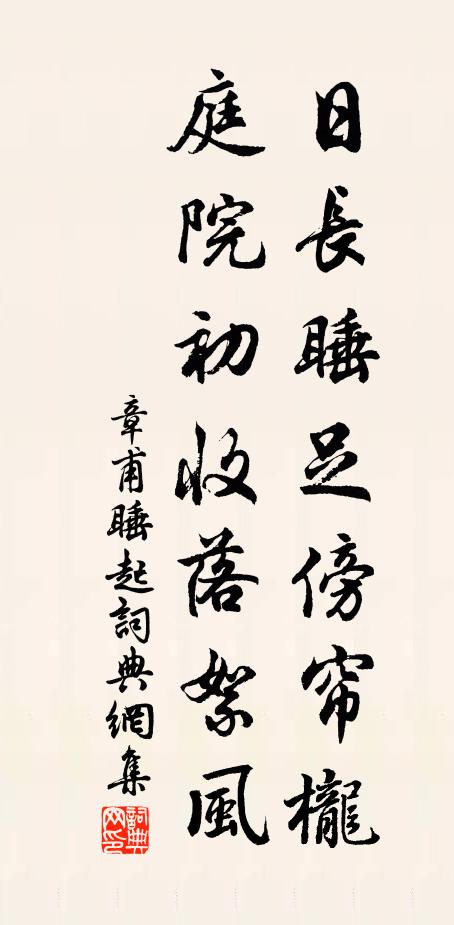 日長睡足傍帘櫳
庭院初收落絮風
章甫睡起詞典網集
詞典網印